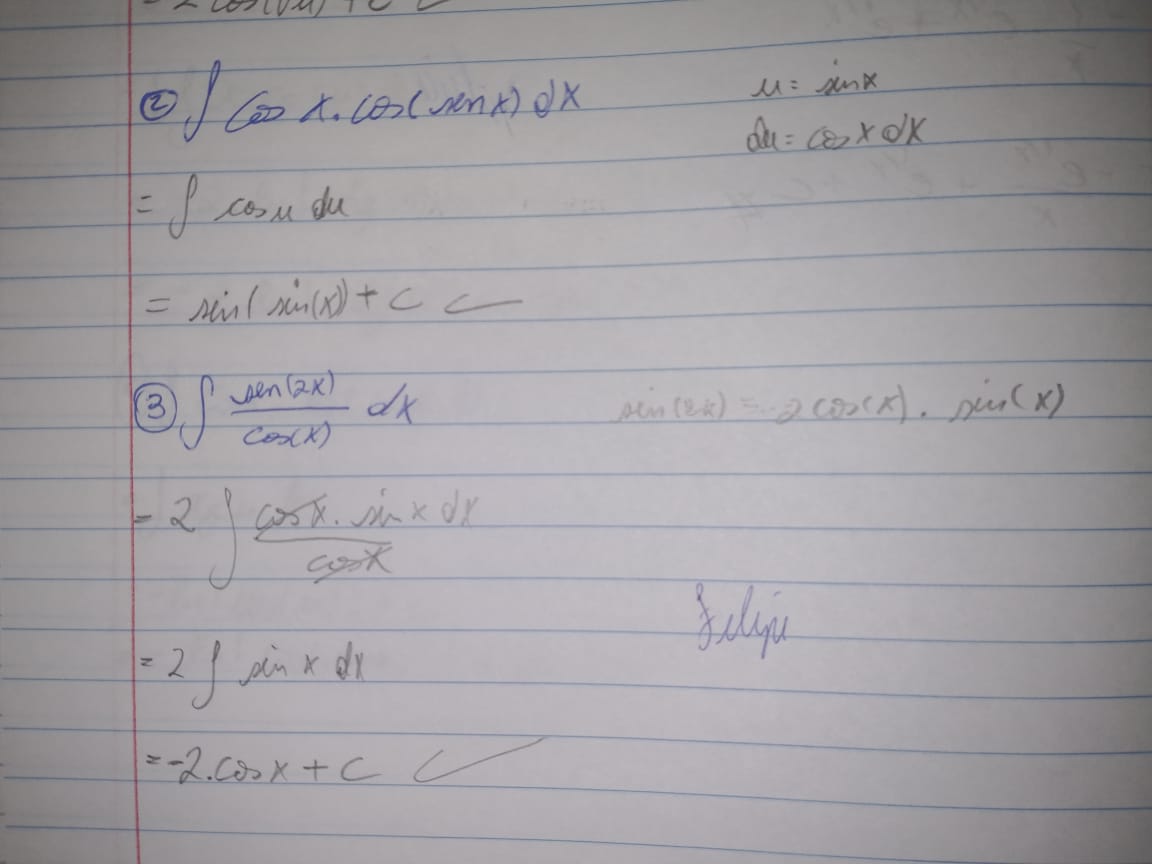 = 2 cos(√x) + C
② ∫ cos x . cos(sen x) dx
u = sin x
du = cos x dx
= ∫ cos u du
= sin( sin(x)) + C
③ ∫ sen(2x) / cos(x) dx
sin(2x) = 2 cos(x) . sin(x)
= 2 ∫ cos x . sin x dx / cos x
= 2 ∫ sin x dx
Felipe
= -2 . cos x + C